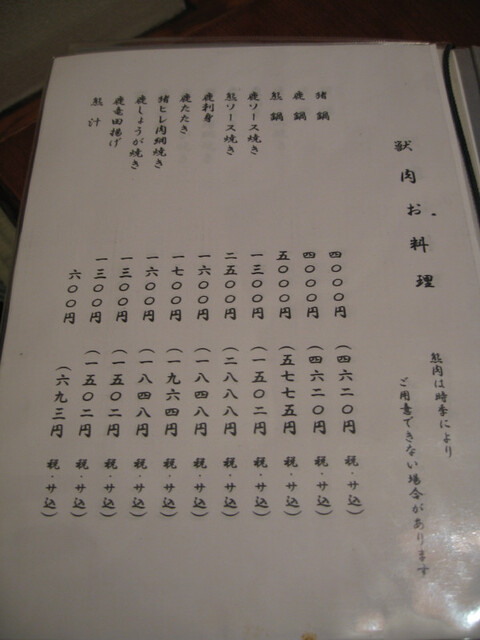 獣肉お料理
熊肉は時季により
ご用意できない場合があります
猪鍋 四〇〇〇円 (四六二〇円 税・サ込)
鹿鍋 四〇〇〇円 (四六二〇円 税・サ込)
熊鍋 五〇〇〇円 (五七七五円 税・サ込)
鹿ソース焼き 一三〇〇円 (一五〇二円 税・サ込)
熊ソース焼き 二五〇〇円 (二八八八円 税・サ込)
鹿刺身 一六〇〇円 (一八四八円 税・サ込)
鹿たたき 一七〇〇円 (一九六四円 税・サ込)
猪ヒレ肉網焼き 一六〇〇円 (一八四八円 税・サ込)
鹿しょうが焼き 一三〇〇円 (一五〇二円 税・サ込)
鹿竜田揚げ 一三〇〇円 (一五〇二円 税・サ込)
熊汁 六〇〇円 (六九三円 税・サ込)